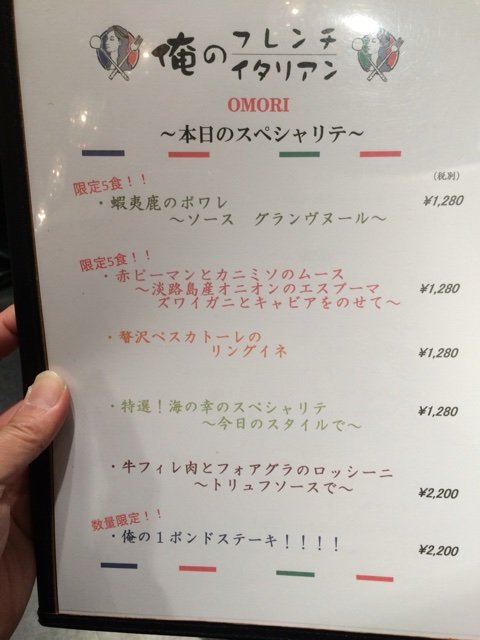 俺のフレンチ
イタリアン
OMORI
～本日のスペシャリテ～
(税別)
限定5食！！
・蝦夷鹿のポワレ ¥1,280
～ソース　グランヴヌール～
限定5食！！
・赤ピーマンとカニミソのムース
～淡路島産オニオンのエスプーマ ¥1,280
ズワイガニとキャビアをのせて～
・贅沢ペスカトーレの
リングイネ ¥1,280
・特選！海の幸のスペシャリテ ¥1,280
～今日のスタイルで～
・牛フィレ肉とフォアグラのロッシーニ
～トリュフソースで～ ¥2,200
数量限定！！
・俺の１ポンドステーキ！！！！ ¥2,200